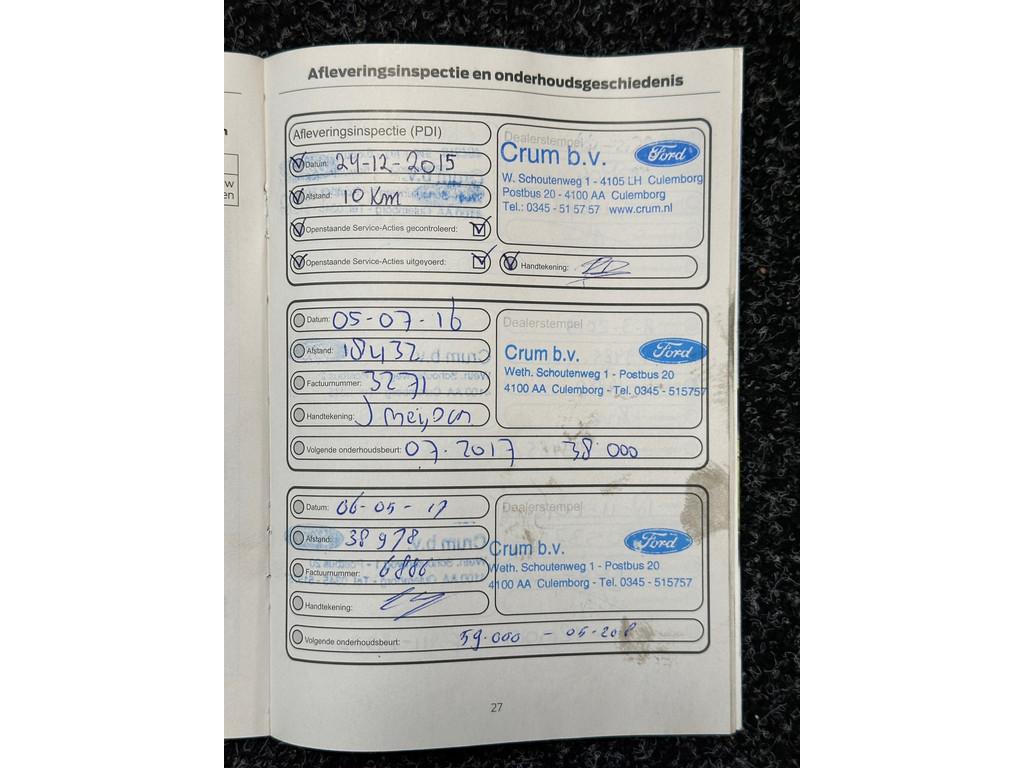 Afleveringsinspectie en onderhoudsgeschiedenis
Afleveringsinspectie (PDI)
Datum: 24-12-2015
Afstand: 10 Km
Openstaande Service-Acties gecontroleerd:
Openstaande Service-Acties uitgevoerd:
Dealerstempel
Crum b.v. Ford
W. Schoutenweg 1 - 4105 LH Culemborg
Postbus 20 - 4100 AA Culemborg
Tel.: 0345 - 51 57 57 www.crum.nl
Handtekening:
Datum: 05-07-16
Afstand: 18432
Factuurnummer: 3271
Handtekening:
Dealerstempel
Crum b.v. Ford
Weth. Schoutenweg 1 - Postbus 20
4100 AA Culemborg - Tel. 0345 - 515757
Volgende onderhoudsbeurt: 07-2017 38.000
Datum: 06-05-17
Afstand: 38978
Factuurnummer: 6886
Handtekening:
Dealerstempel
Crum b.v. Ford
Weth. Schoutenweg 1 - Postbus 20
4100 AA Culemborg - Tel. 0345 - 515757
Volgende onderhoudsbeurt: 59.000 - 05-2018
27